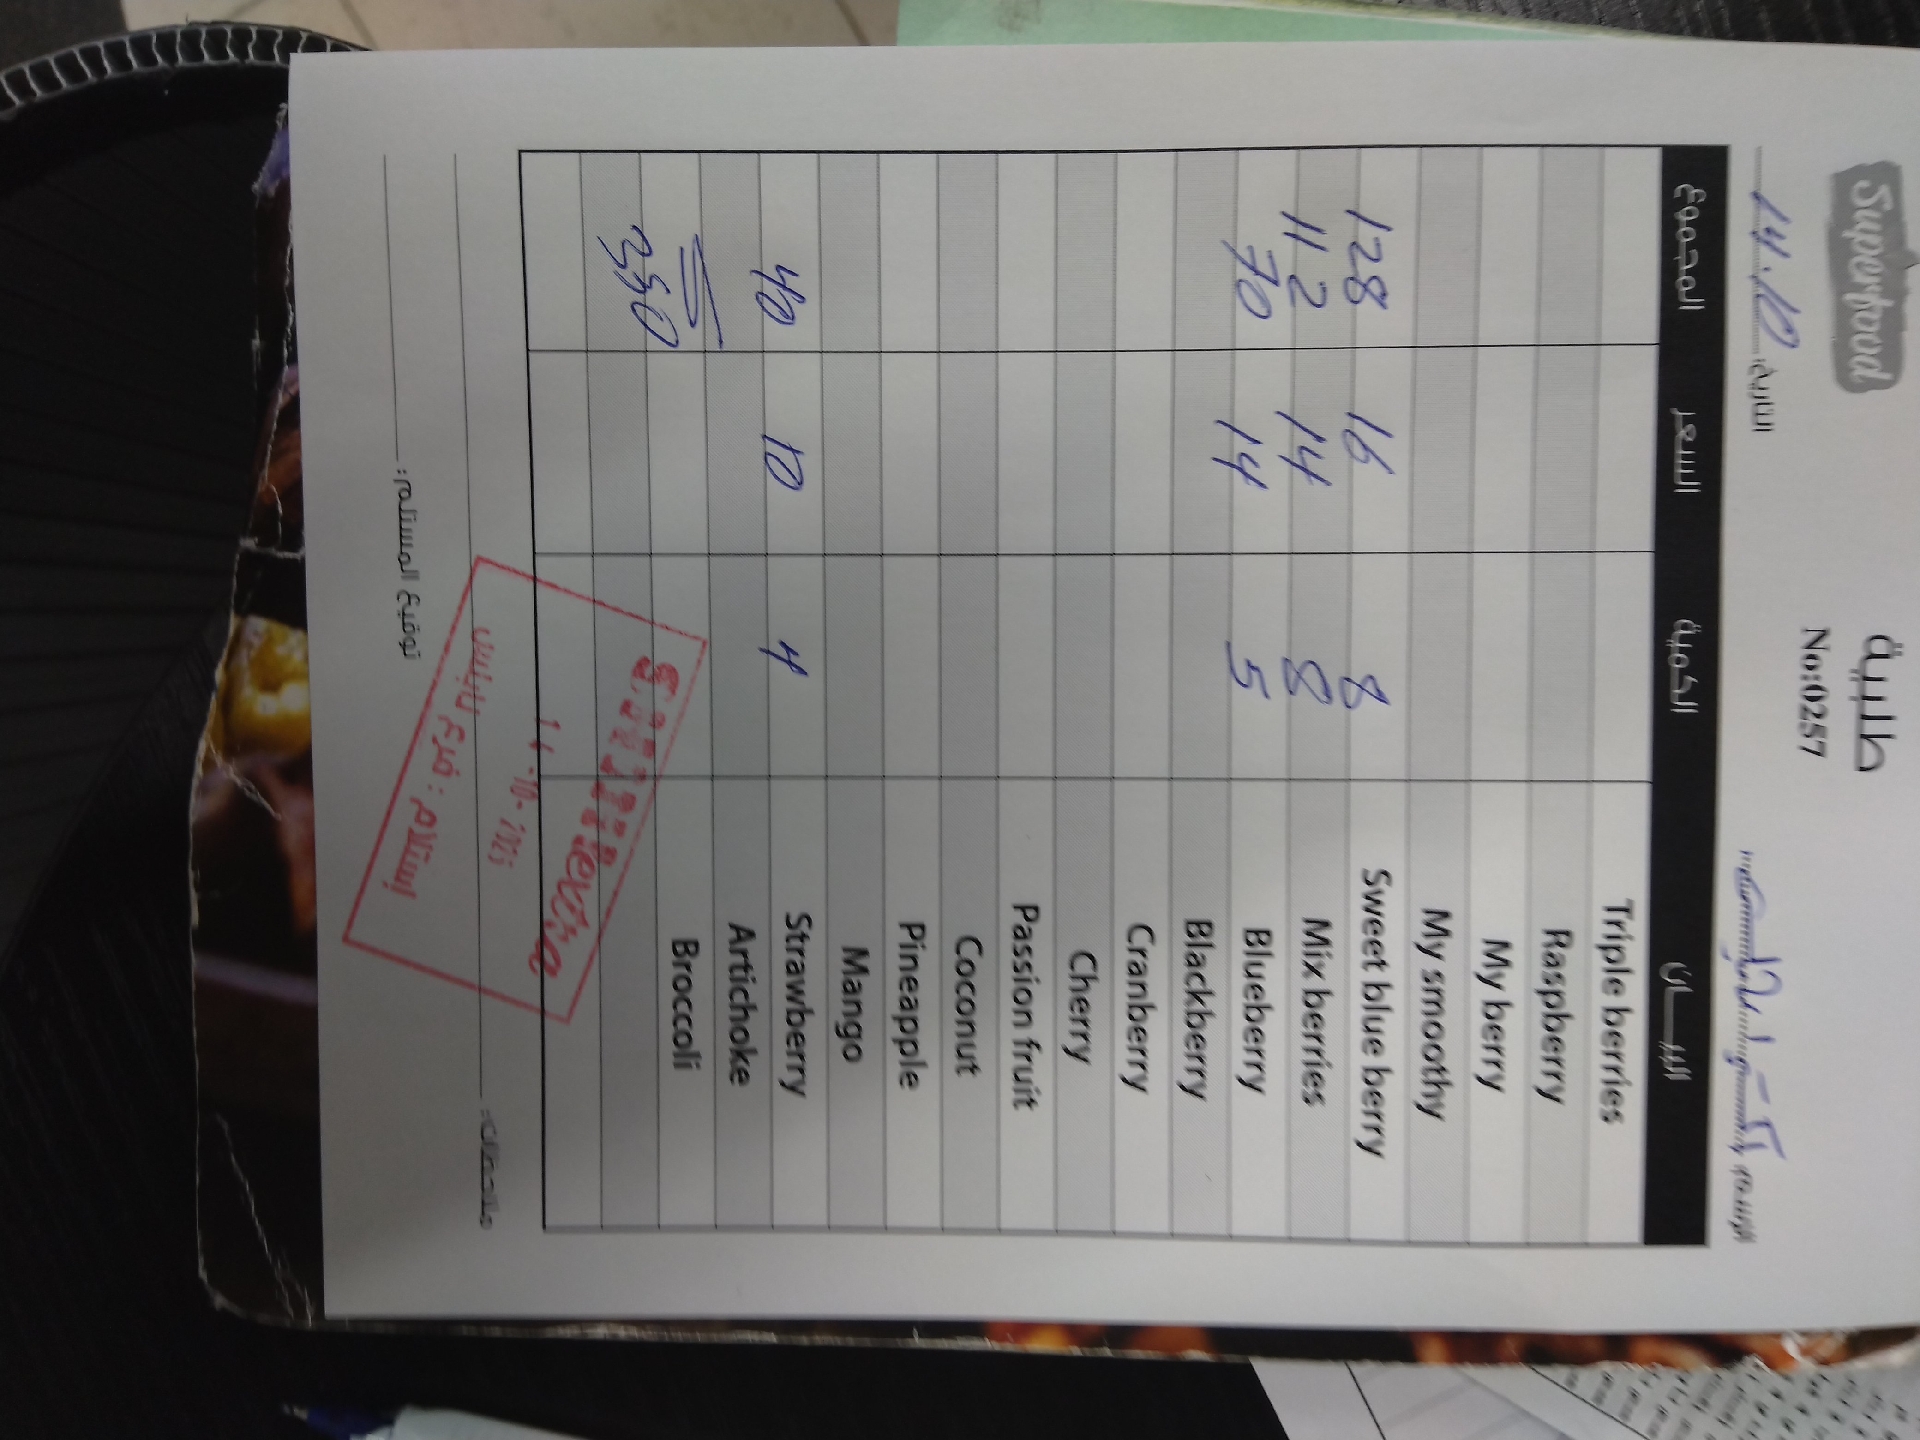 Superfood
طلبية
No:0257
التاريخ: 14.10
الإسم
المجموع السعر الكمية البيـــان
Triple berries
Raspberry
My berry
My smoothy
128 16 8 Sweet blue berry
112 14 8 Mix berries
70 14 5 Blueberry
Blackberry
Cranberry
Cherry
Passion fruit
Coconut
Pineapple
Mango
40 10 4 Strawberry
Artichoke
350 Broccoli
14-10-2025
إستلام فرع:
ملاحظات:
توقيع المستلم: